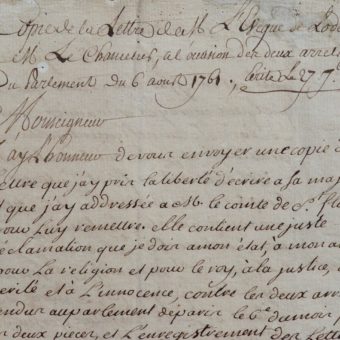 Copie de la Lettre de M. L'Evêque de Lod
M. Le Chancelier, a l'occasion des deux arrets
Du Parlement du 6 aoust 1761., Ecrite Le 27 7
Monseigneur
J'ay L'honneur de vous envoyer une copie d
ettre que j'ay pris la liberté d'écrire a sa maj
t que j'ay addressée a M. le comte de St. flo
pour Luy remettre. elle contient une juste
éclamation que je dois a mon état, à mon a
pour La religion et pour le roy, a la justice, a
erité et à L'innocence, contre les deux arr
endus au parlement de paris le 6e. du mois
es deux pieces, et L'enregistrement des Lettr